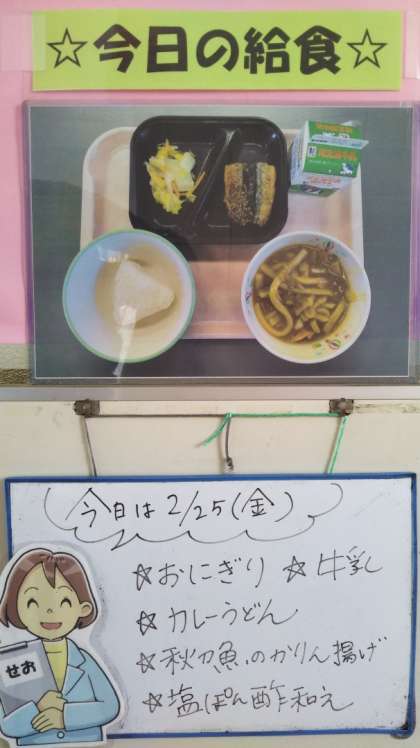 ☆今日の給食☆
今日は2/25(金)
☆おにぎり ☆牛乳
☆カレーうどん
☆秋刀魚のかりん揚げ
☆塩ぽん酢和え
せお